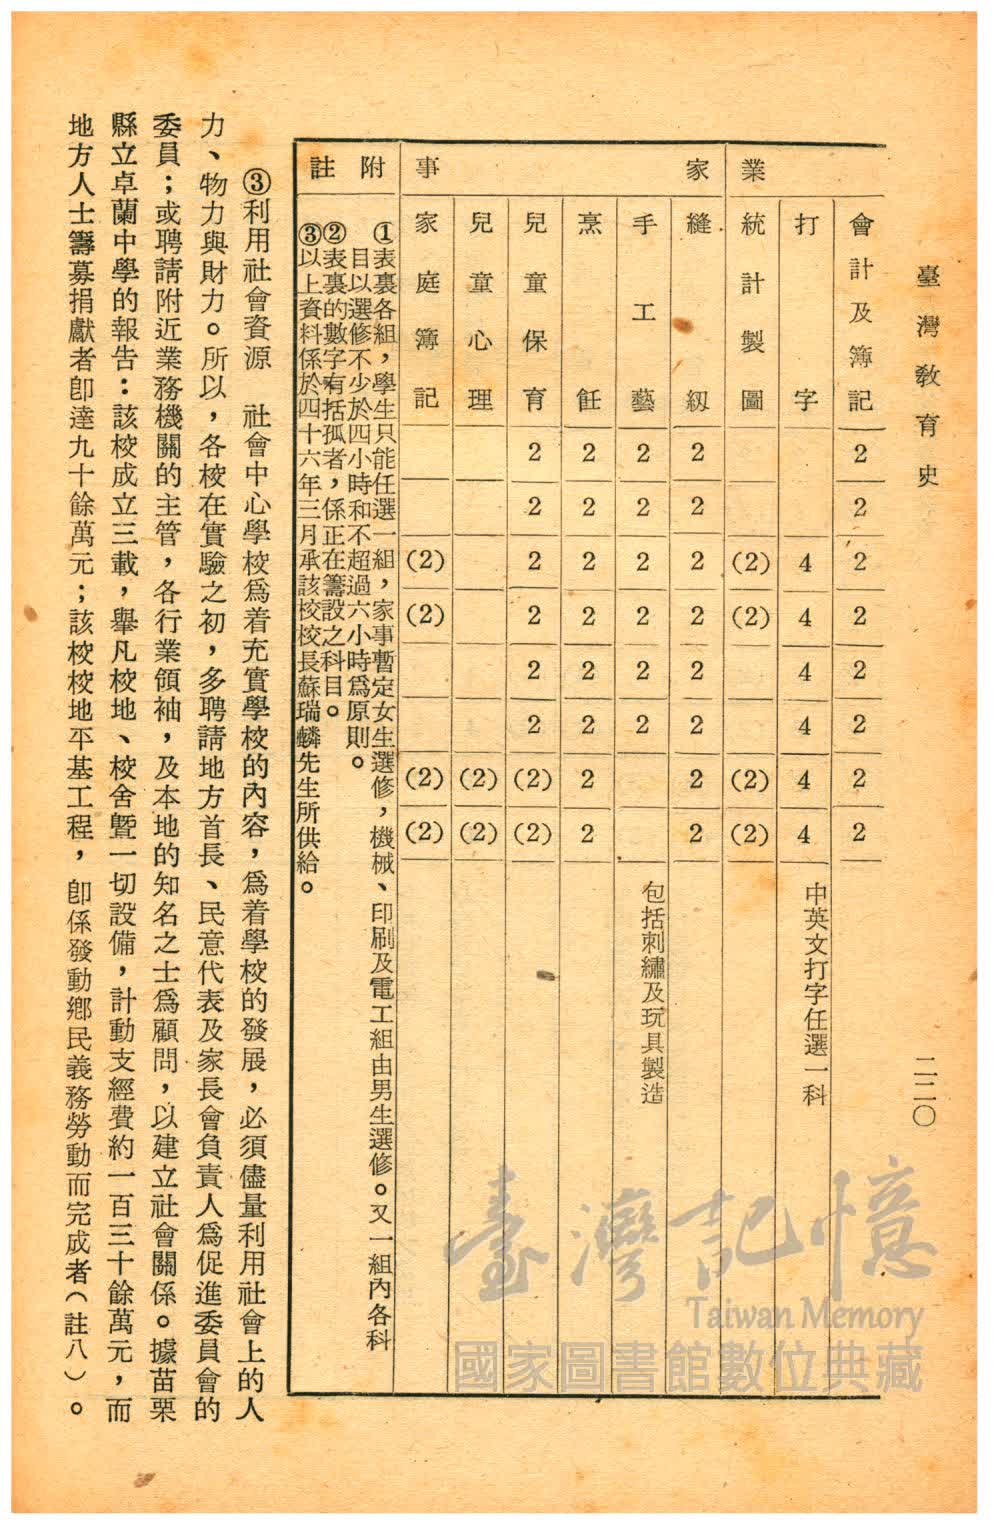 臺灣教育史
二二〇
業
會計及簿記 2 2 2 2 2 2 2 2
打字 4 4 4 4 4 4 中英文打字任選一科
統計製圖 (2) (2) (2) (2)
家事
縫紉 2 2 2 2 2 2 2 2
手工藝 2 2 2 2 2 2 包括刺繡及玩具製造
烹飪 2 2 2 2 2 2 2 2
兒童保育 2 2 2 2 2 2 (2) (2)
兒童心理 (2) (2)
家庭簿記 (2) (2) (2) (2)
附註
①表裏各組，學生只能任選一組，家事暫定女生選修，機械、印刷及電工組由男生選修。又一組內各科
目以選修不少於四小時和不超過六小時爲原則。
②表裏的數字有括孤者，係正在籌設之科目。
③以上資料係於四十六年三月承該校校長蘇瑞鱗先生所供給。
③利用社會資源　社會中心學校爲着充實學校的內容，爲着學校的發展，必須儘量利用社會上的人
力、物力與財力。所以，各校在實驗之初，多聘請地方首長、民意代表及家長會負責人爲促進委員會的
委員；或聘請附近業務機關的主管，各行業領袖，及本地的知名之士爲顧問，以建立社會關係。據苗栗
縣立卓蘭中學的報告：該校成立三載，舉凡校地、校舍暨一切設備，計動支經費約一百三十餘萬元，而
地方人士籌募捐獻者卽達九十餘萬元；該校校地平基工程，卽係發動鄉民義務勞動而完成者（註八）。
臺灣記憶
Taiwan Memory
國家圖書館數位典藏